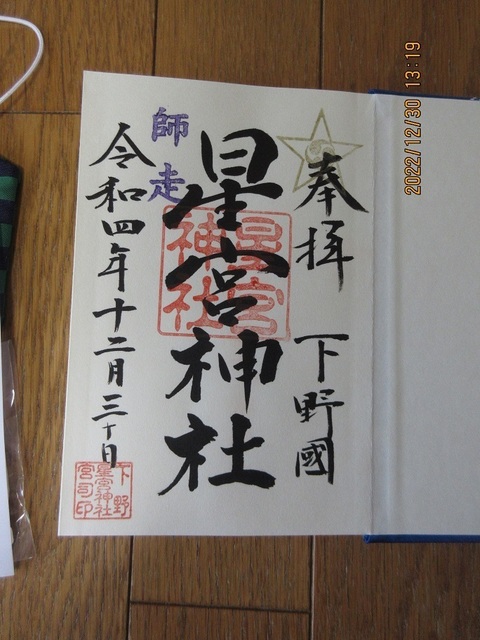 奉拝 下野國
星宮神社
星宮神社
師走
令和四年十二月三十日
下野
星宮神社
宮司印
2022/12/30 13:19